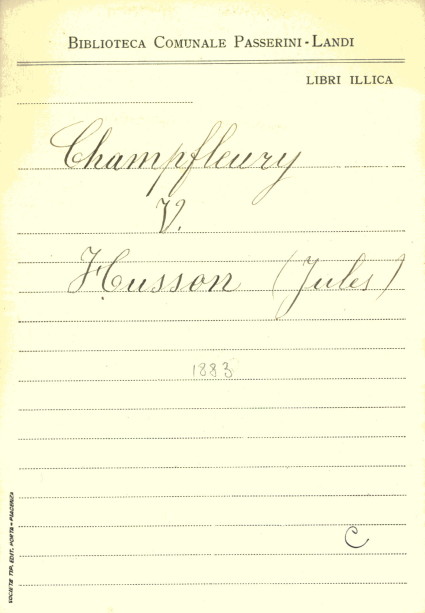 BIBLIOTECA COMUNALE PASSERINI-LANDI
LIBRI ILLICA
Champfleury
V.
Husson (Jules)
1883
C
SOCIETÀ TIP. EDIT. PORTA - PIACENZA